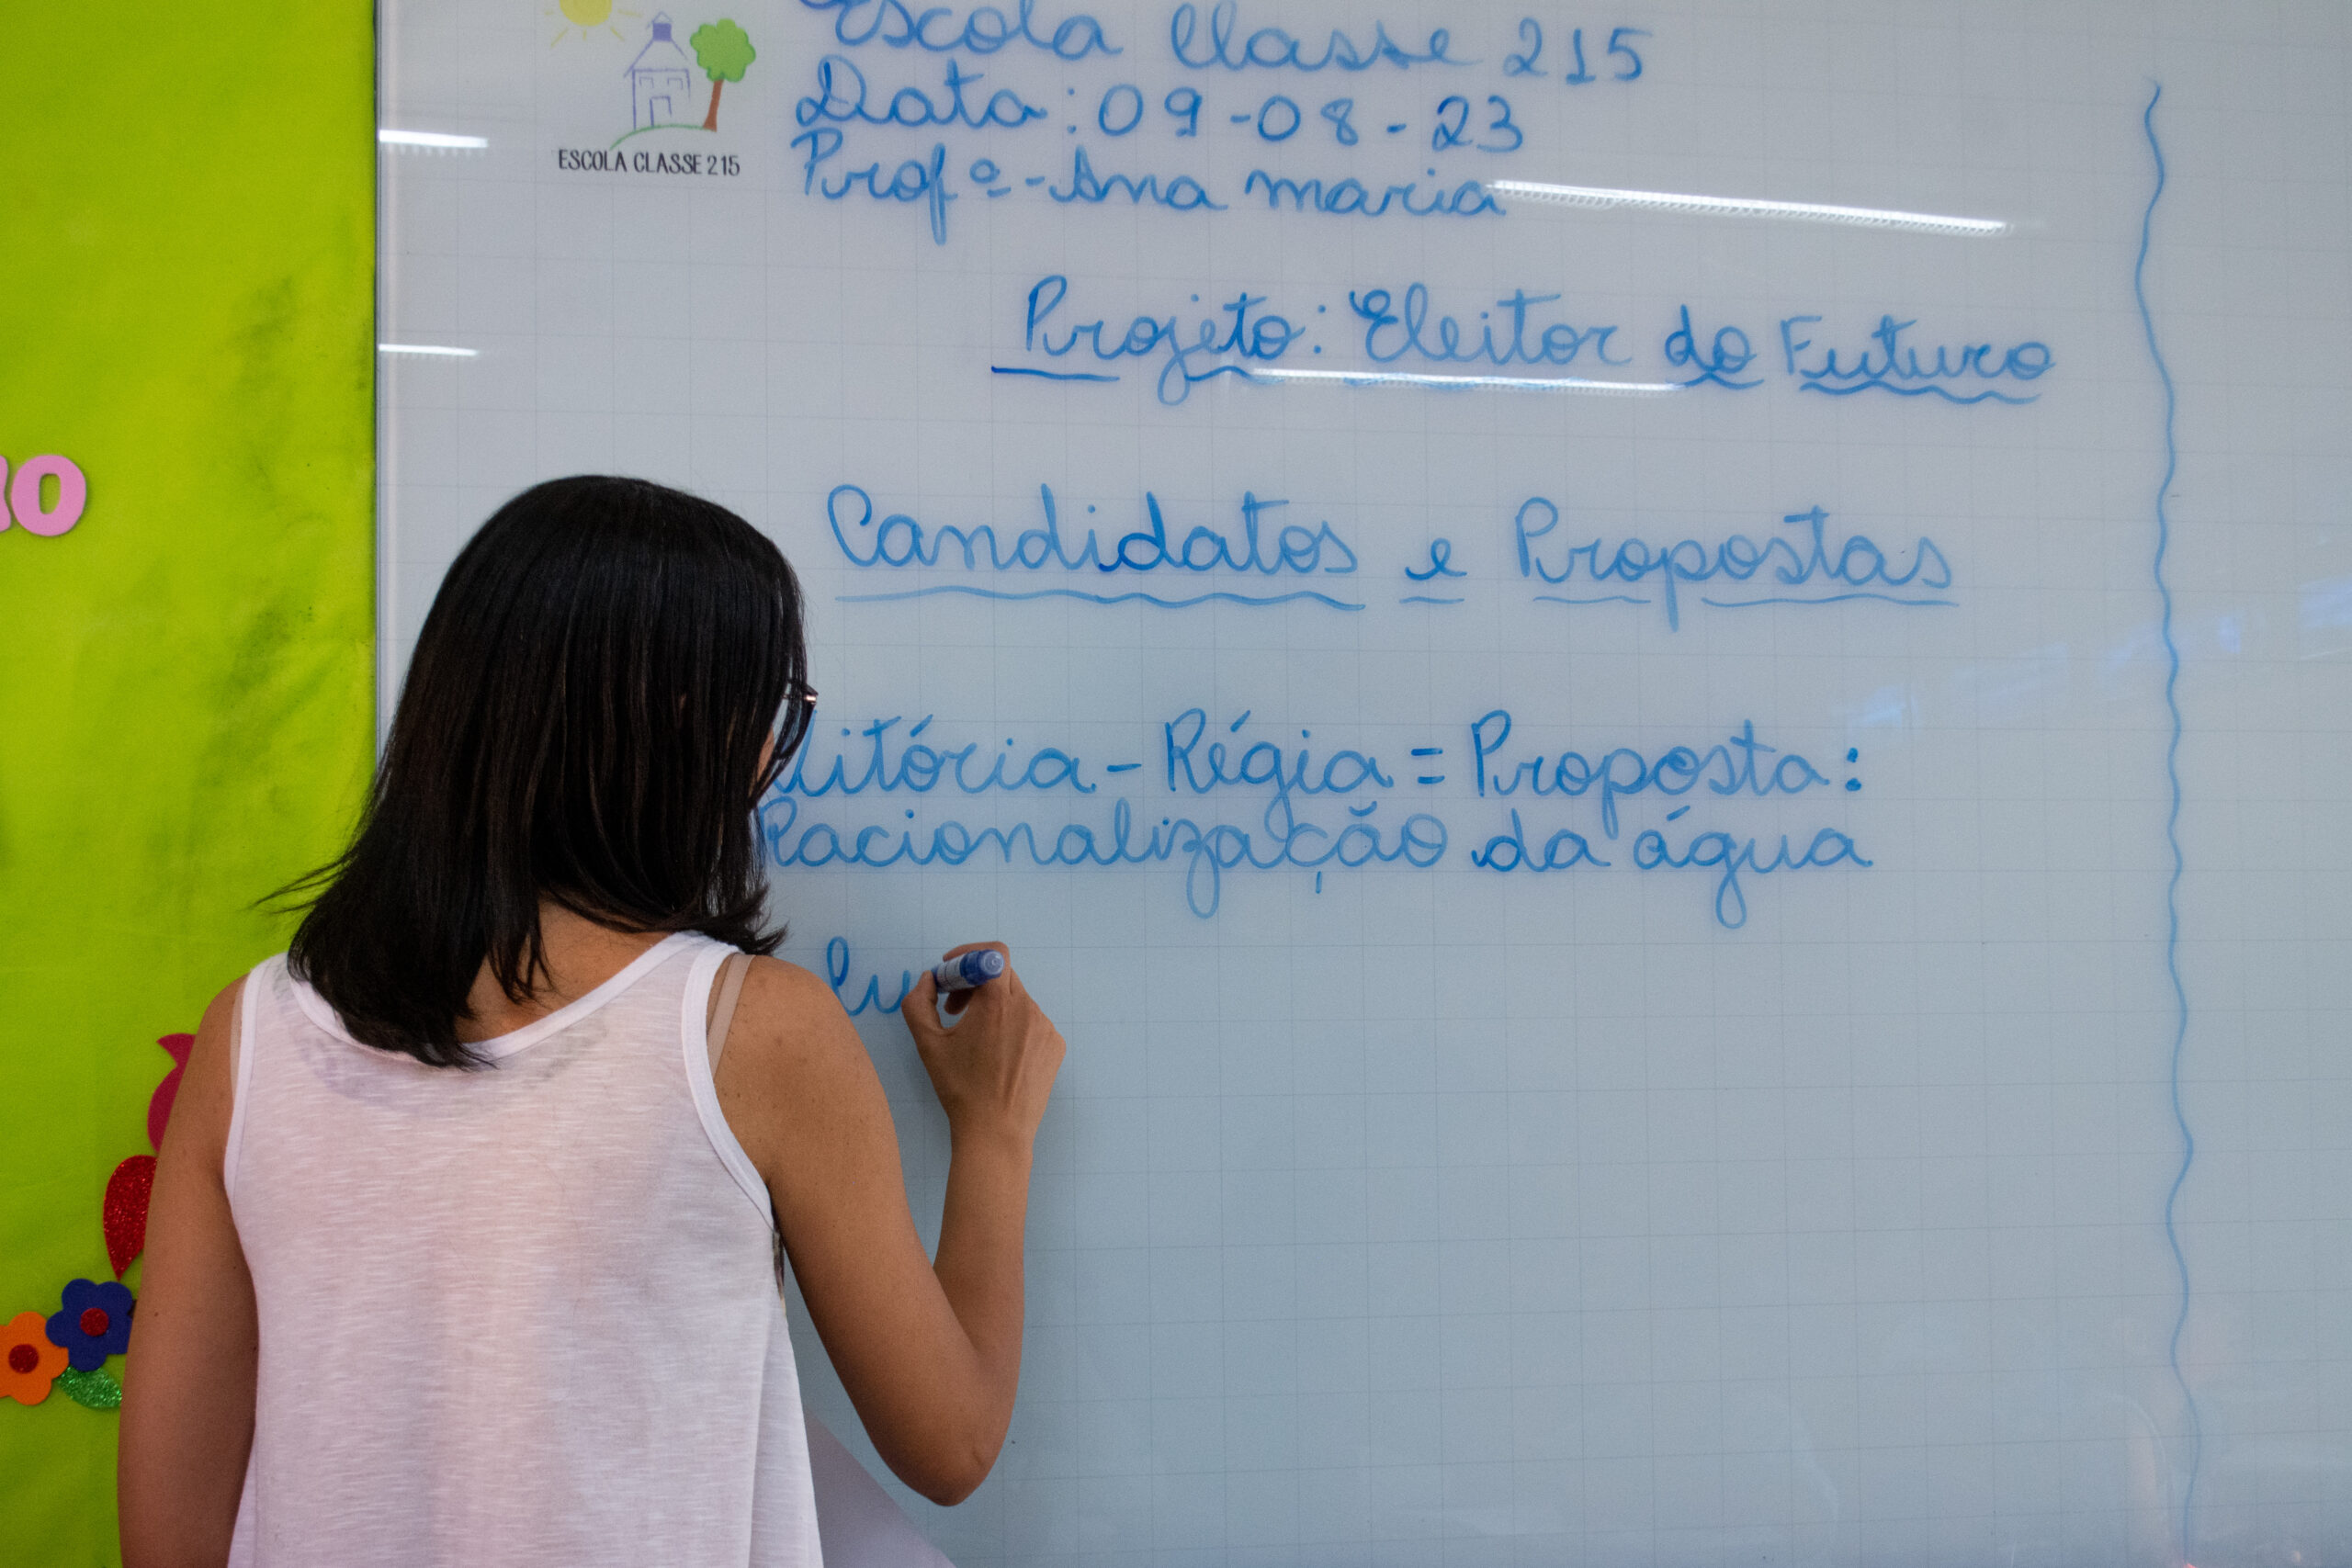 Escola Classe 215
Data: 09-08-23
Profª - Ana maria
ESCOLA CLASSE 215
Projeto: Eleitor do Futuro
Candidatos e Propostas
Vitória - Régia = Proposta:
Racionalização da água